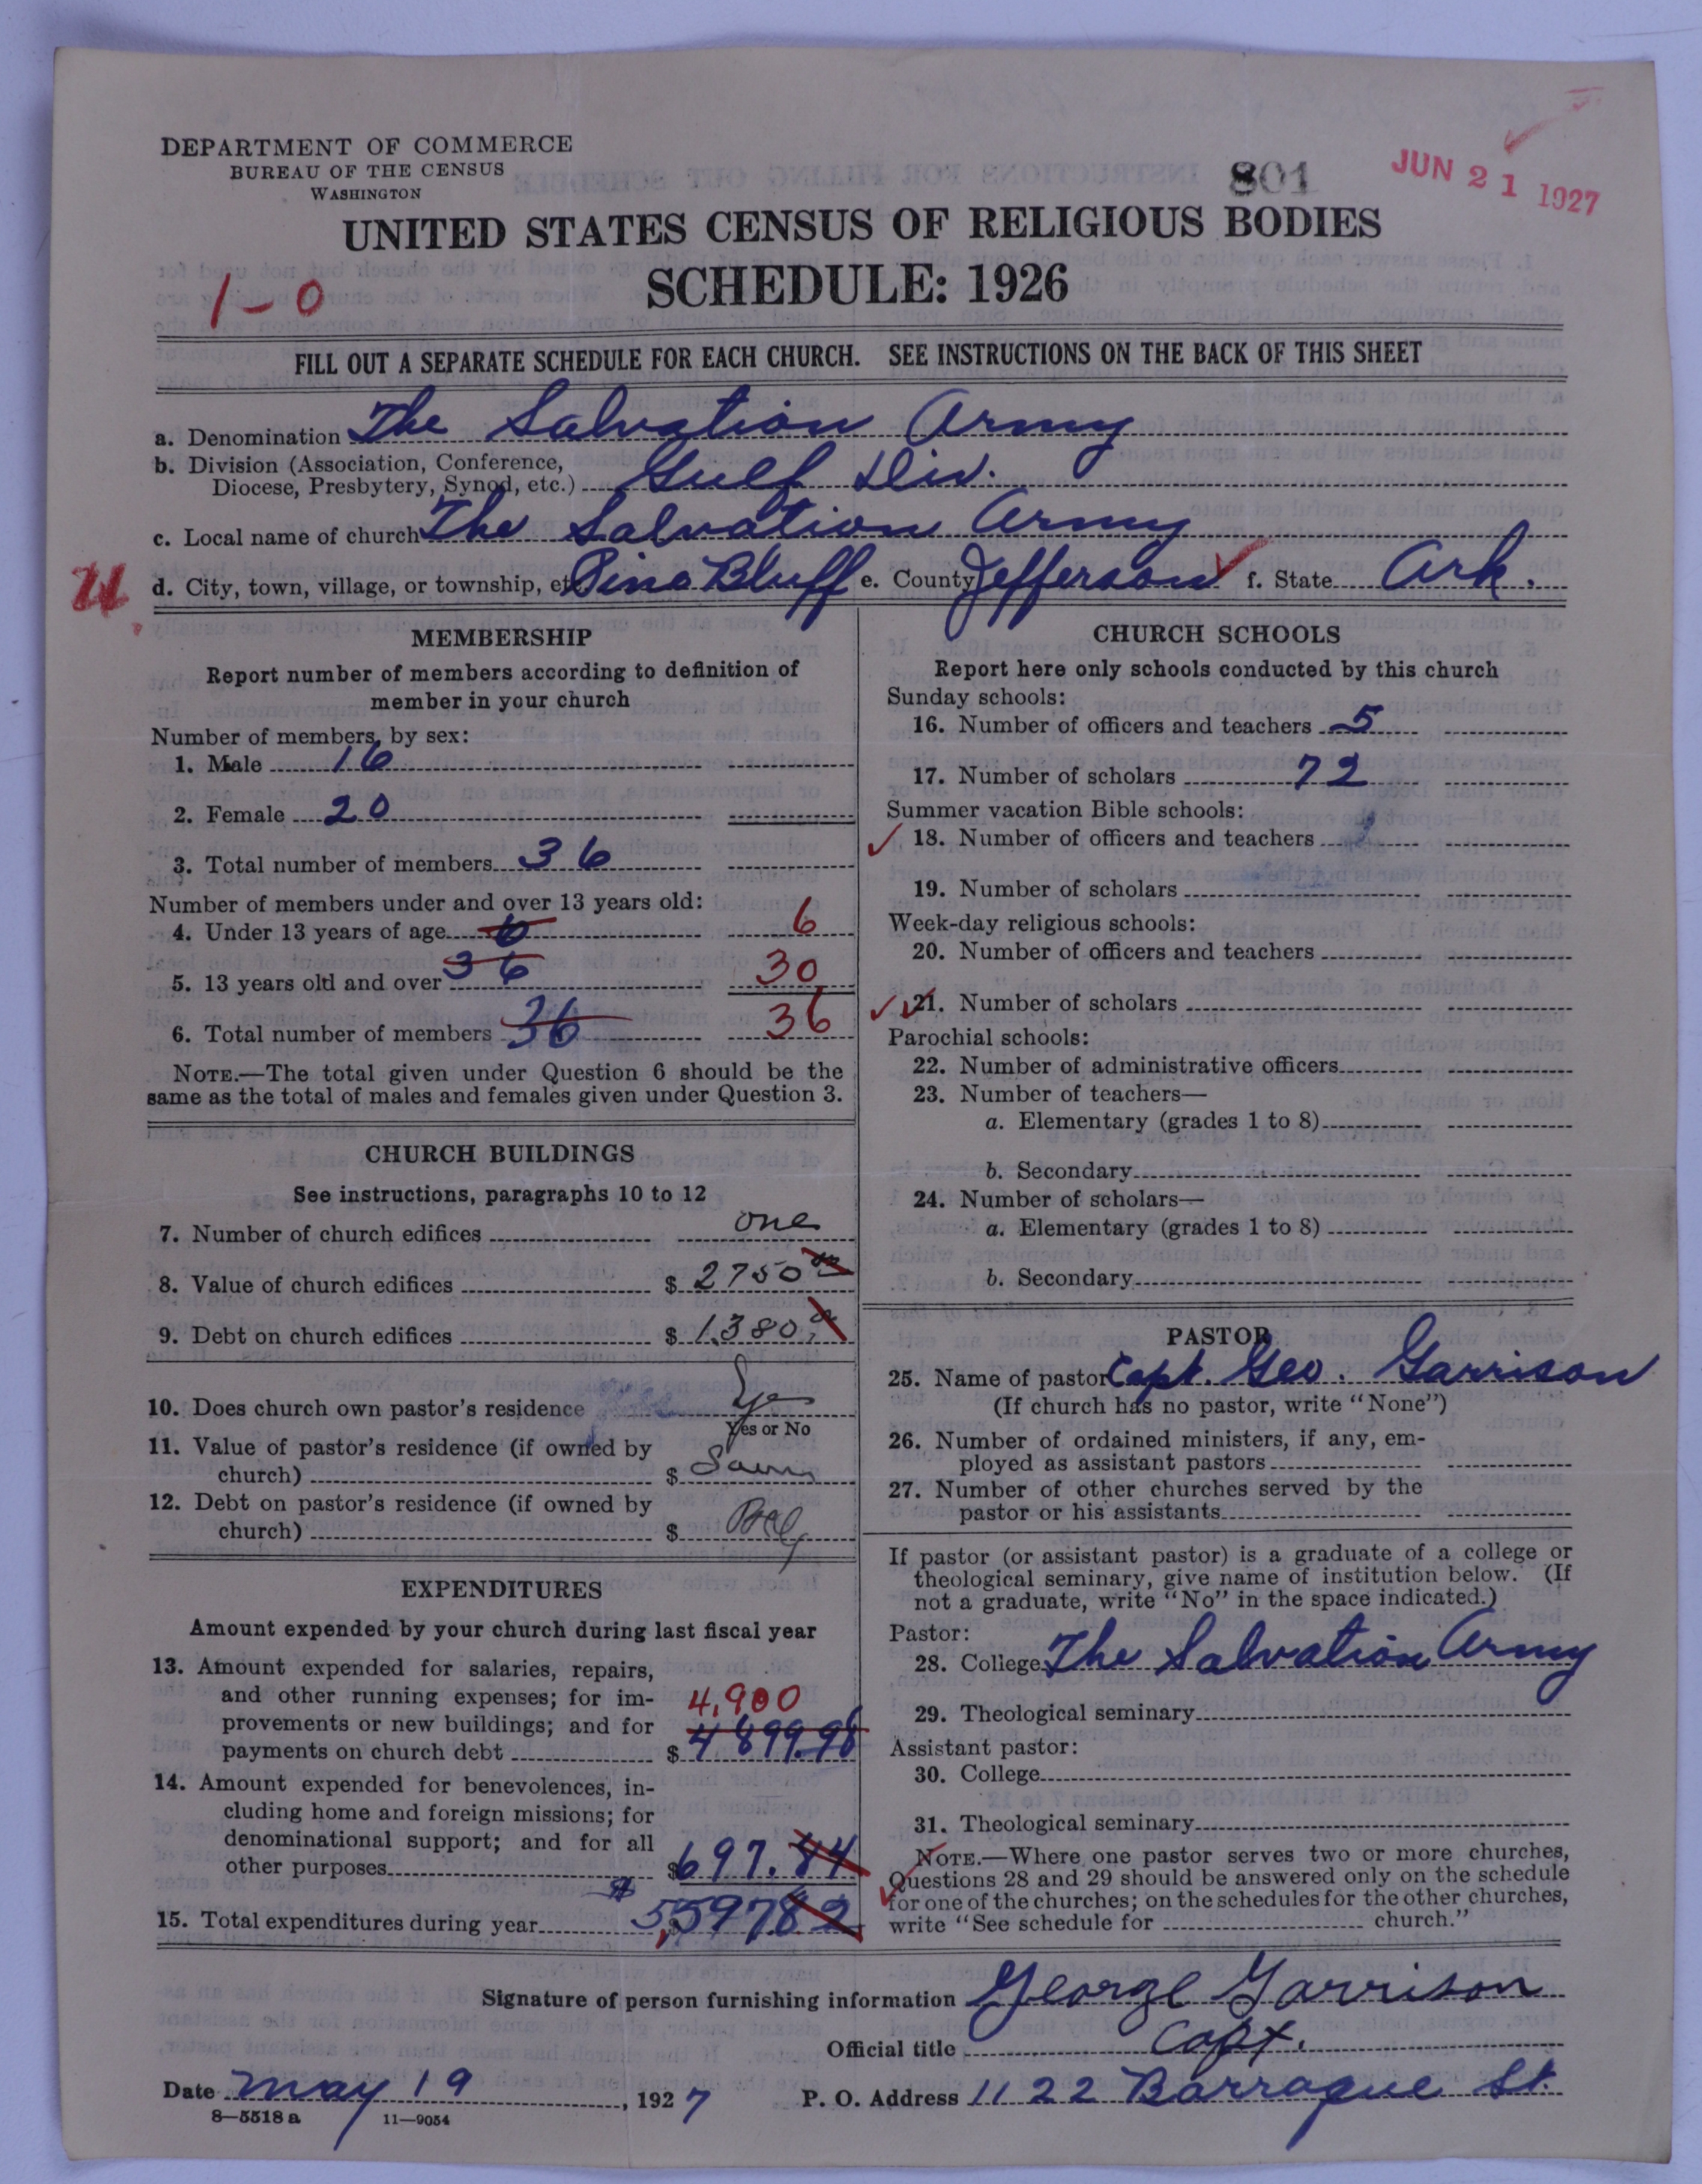 DEPARTMENT OF COMMERCE
BUREAU OF THE CENSUS
WASHINGTON
801
JUN 21 1927
UNITED STATES CENSUS OF RELIGIOUS BODIES
SCHEDULE: 1926
1-0
FILL OUT A SEPARATE SCHEDULE FOR EACH CHURCH. SEE INSTRUCTIONS ON THE BACK OF THIS SHEET
a. Denomination The Salvation Army
b. Division (Association, Conference,
Diocese, Presbytery, Synod, etc.) Gulf Div.
c. Local name of church The Salvation Army
d. City, town, village, or township, etc. Pine Bluff e. County Jefferson f. State Ark.
MEMBERSHIP
Report number of members according to definition of
member in your church
Number of members, by sex:
1. Male 16
2. Female 20
3. Total number of members 36
Number of members under and over 13 years old:
4. Under 13 years of age 6 6
5. 13 years old and over 36 30
6. Total number of members 36 36
NOTE.—The total given under Question 6 should be the
same as the total of males and females given under Question 3.
CHURCH BUILDINGS
See instructions, paragraphs 10 to 12
7. Number of church edifices one
8. Value of church edifices $ 2750 00
9. Debt on church edifices $ 1,380.
10. Does church own pastor's residence Yes
Yes or No
11. Value of pastor's residence (if owned by
church) $ Same
12. Debt on pastor's residence (if owned by
church) $
EXPENDITURES
Amount expended by your church during last fiscal year
13. Amount expended for salaries, repairs,
and other running expenses; for im- 4,900
provements or new buildings; and for
payments on church debt $ 4899.98
14. Amount expended for benevolences, in-
cluding home and foreign missions; for
denominational support; and for all
other purposes $ 697.84
15. Total expenditures during year $ 5,59782
CHURCH SCHOOLS
Report here only schools conducted by this church
Sunday schools:
16. Number of officers and teachers 5
17. Number of scholars 72
Summer vacation Bible schools:
18. Number of officers and teachers
19. Number of scholars
Week-day religious schools:
20. Number of officers and teachers
21. Number of scholars
Parochial schools:
22. Number of administrative officers
23. Number of teachers—
a. Elementary (grades 1 to 8)
b. Secondary
24. Number of scholars—
a. Elementary (grades 1 to 8)
b. Secondary
PASTOR
25. Name of pastor Capt. Geo. Garrison
(If church has no pastor, write "None")
26. Number of ordained ministers, if any, em-
ployed as assistant pastors
27. Number of other churches served by the
pastor or his assistants
If pastor (or assistant pastor) is a graduate of a college or
theological seminary, give name of institution below. (If
not a graduate, write "No" in the space indicated.)
Pastor:
28. College The Salvation Army
29. Theological seminary
Assistant pastor:
30. College
31. Theological seminary
NOTE.—Where one pastor serves two or more churches,
Questions 28 and 29 should be answered only on the schedule
for one of the churches; on the schedules for the other churches,
write "See schedule for church."
Signature of person furnishing information George Garrison
Official title Capt.
Date May 19, 1927 P. O. Address 1122 Barraque St.
8—5518 a 11—9054